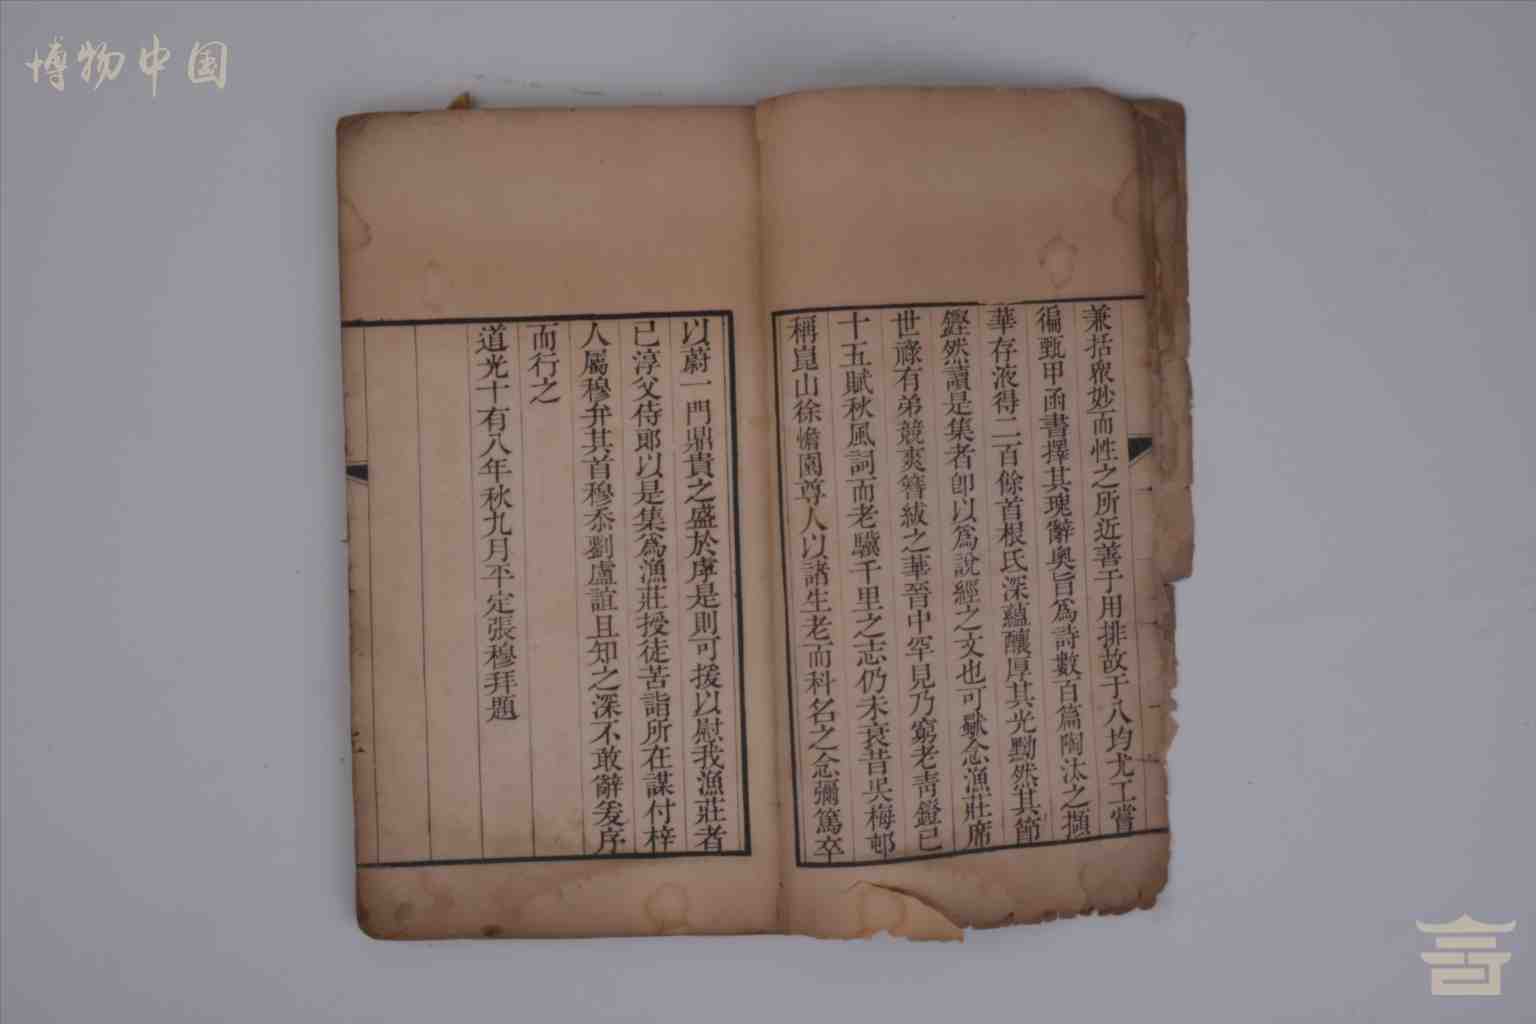 博物中国
兼括眾妙而性之所近善于用排故于八均尤工嘗
徧甄甲函書擇其瑰辭奧旨爲詩數百篇陶汰之擷
華存液得二百餘首根氐深蘊釀厚其光黝然其節
鏗然讀是集者卽以爲說經之文也可歟念漁莊席
世祿有弟競爽簪紱之華晉中罕見乃窮老靑鐙已
十五賦秋風詞而老驥千里之志仍未衰昔吳梅邨
稱崑山徐憺園尊人以諸生老而科名之念彌篤卒
以蔚一門鼎貴之盛於虖是則可援以慰我漁莊者
已淳父侍郞以是集爲漁莊授徒苦詣所在謀付梓
人屬穆弁其首穆忝劉盧誼且知之深不敢辭爰序
而行之
道光十有八年秋九月平定張穆拜題